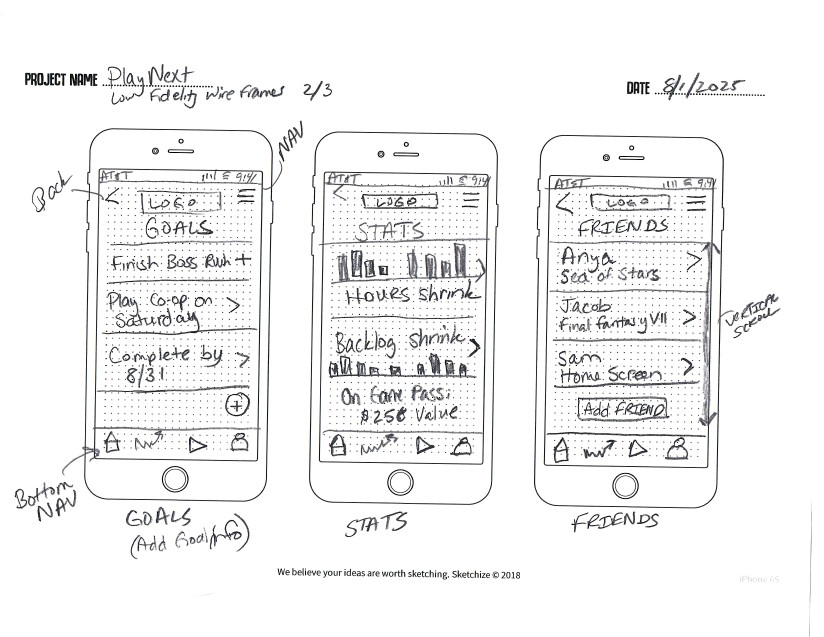 PROJECT NAME PlayNext
Low Fidelity Wire Frames 2/3
DATE 8/1/2025
NAV
Back
AT&T 9:41
LOGO
GOALS
Finish Boss Run +
Play Co-op on
Saturday
Complete by
8/31
Bottom
NAV
GOALS
(Add Goal Info)
AT&T 9:41
LOGO
STATS
Hours shrink
Backlog shrink
On Game Pass:
Value
STATS
AT&T 9:41
LOGO
FRIENDS
Anya
Sea of Stars
Jacob
Final fantasy VII
Sam
Home Screen
Add FRIEND
VERTICAL
SCROLL
FRIENDS
We believe your ideas are worth sketching. Sketchize © 2018
iPhone 6S